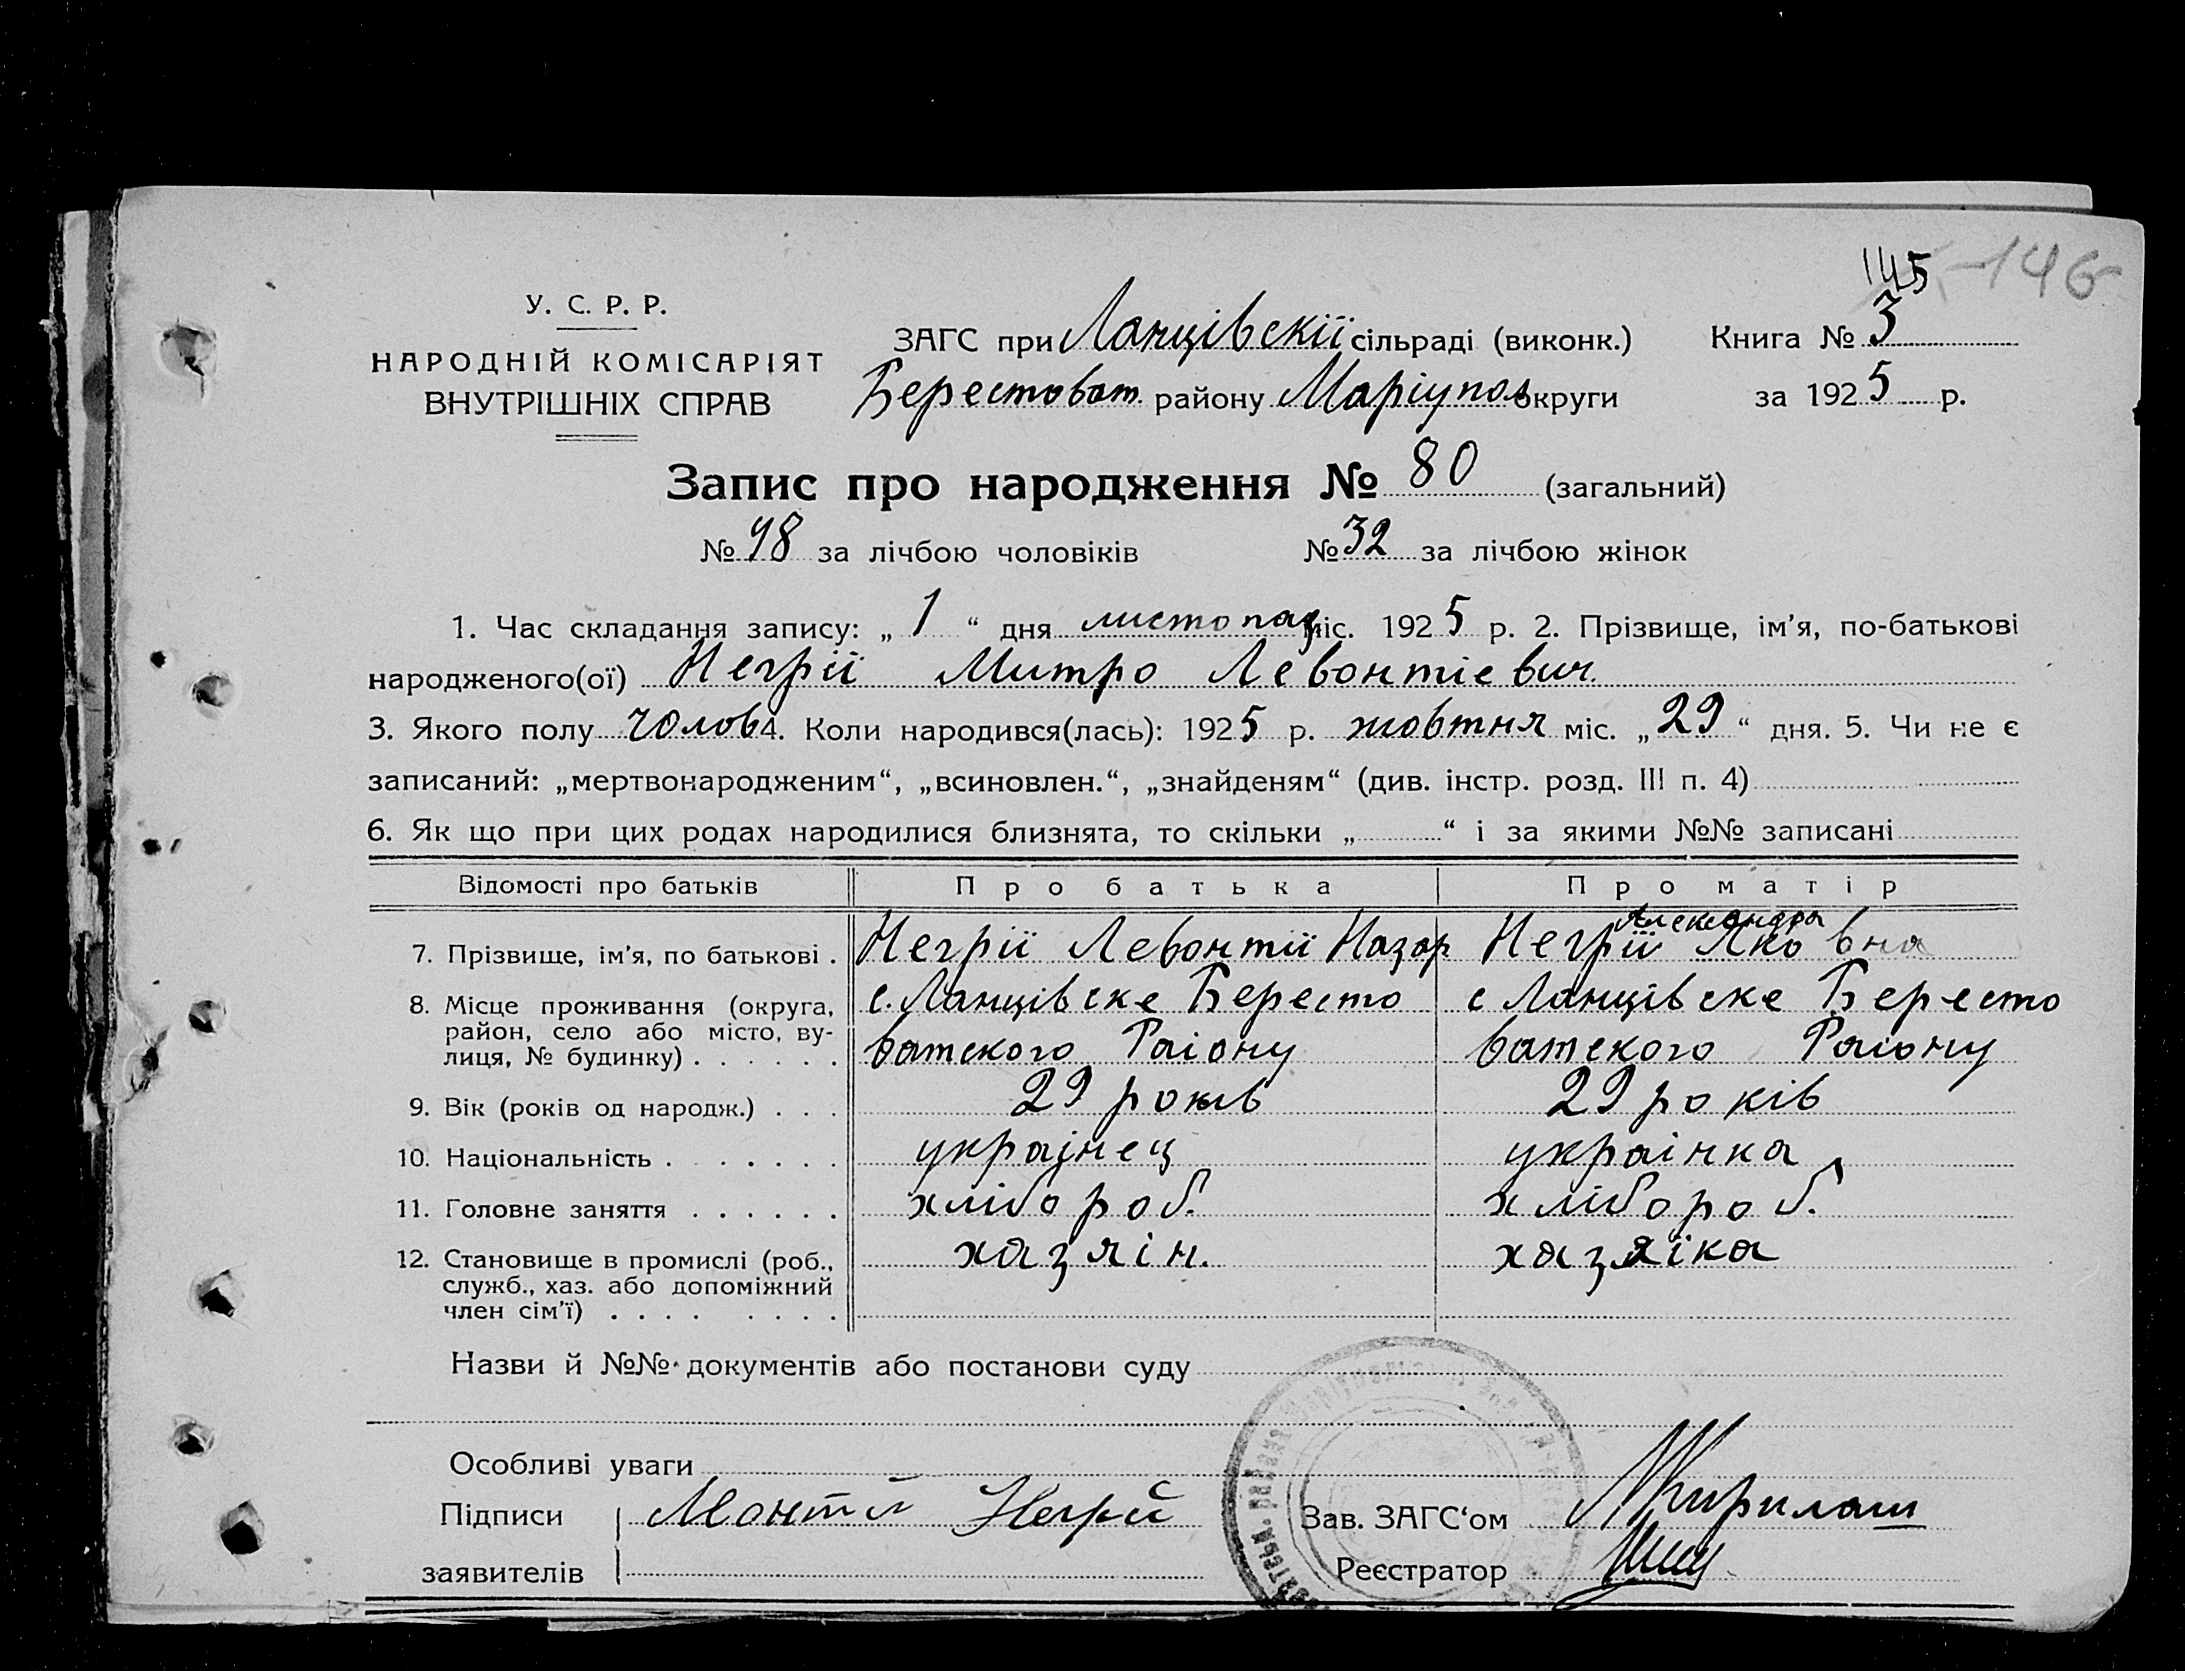 145 -146
У. С. Р. Р.
НАРОДНІЙ КОМІСАРІЯТ
ВНУТРІШНІХ СПРАВ
ЗАГС при Ланцівскій сільраді (виконк.) Книга № 3
Берестоват. району Маріупол округи за 1925 р.
Запис про народження № 80 (загальний)
№ 48 за лічбою чоловіків № 32 за лічбою жінок
1. Час складання запису: „ 1 “ дня листопад міс. 1925 р. 2. Прізвище, ім’я, по-батькові
народженого(ої) Негрій Митро Левонтіевич.
3. Якого полу чолов 4. Коли народився(лась): 1925 р. жовтня міс. „29“ дня. 5. Чи не є
записаний: „мертвонародженим“, „всиновлен.“, „знайденям“ (див. інстр. розд. III п. 4)
6. Як що при цих родах народилися близнята, то скільки „ “ і за якими №№ записані
Відомості про батьків Про батька Про матір
Александра
7. Прізвище, ім’я, по батькові . Негрій Левонтій Назар Негрій Яковна
8. Місце проживання (округа, район, село або місто, ву-лиця, № будинку) . . . . . . с. Ланцівске Бересто с Ланцівске Бересто
ватского Раіону ватского Раіону
9. Вік (років од народж.) . . . 29 років 29 років
10. Національність . . . . . . . украінец украінка
11. Головне заняття . . . . . . хлібороб. хлібороб.
12. Становище в промислі (роб., служб., хаз. або допоміжний член сім’ї) . . . . . . . . хазяін. хазяіка
Назви й №№ документів або постанови суду
Особливі уваги
Підписи Негрій Зав. ЗАГС‘ом
заявителів Реєстратор